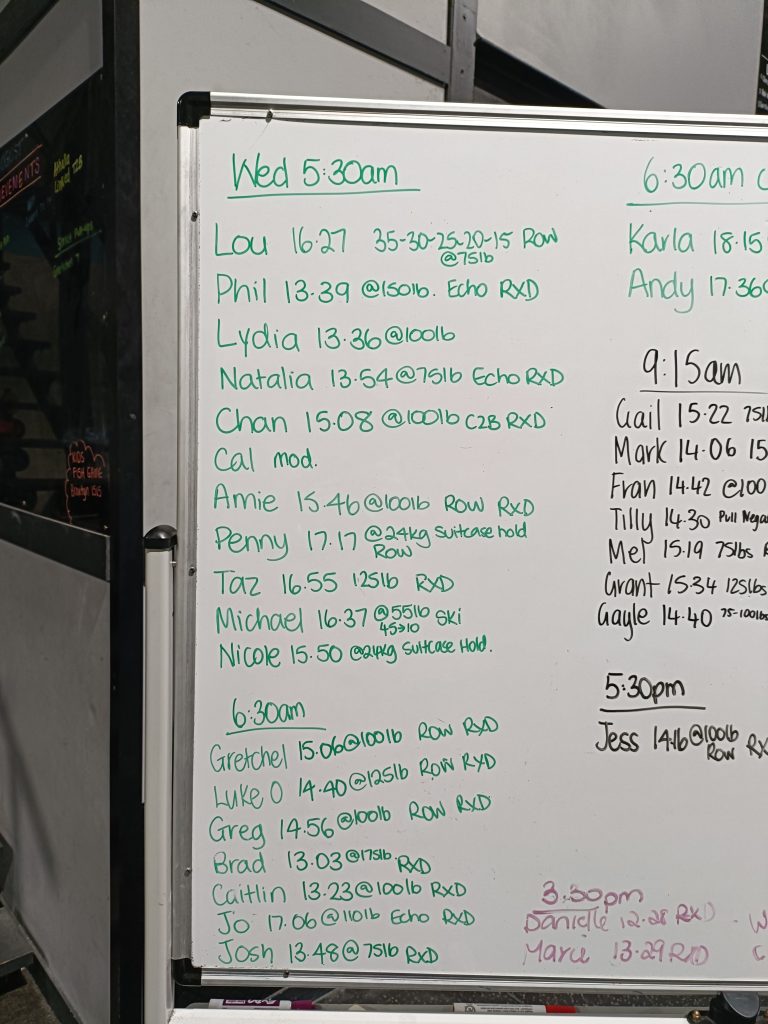 EVEMENTS
KIDS
FISH GAME
Wed 5:30am
Lou 16.27 35-30-25-20-15 Row
@75lb
Phil 13.39 @150lb. Echo RXD
Lydia 13.36@100lb
Natalia 13.54@75lb Echo RXD
Chan 15.08 @100lb C2B RXD
Cal mod.
Amie 15.46@100lb Row RXD
Penny 17.17 @24kg Suitcase hold
Row
Taz 16.55 125lb RXD
Michael 16.37 @55lb Ski
45→10
Nicole 15.50 @24kg Suitcase Hold.
6:30am
Gretchel 15.06@100lb Row RXD
Luke O 14.40@125lb Row RXD
Greg 14.56@100lb Row RXD
Brad 13.03@175lb RXD
Caitlin 13.23@100lb RXD
Jo 17.06@110lb Echo RXD
Josh 13.48@75lb RXD
6:30am C
Karla 18.15
Andy 17.36@
9:15am
Gail 15.22 75lb
Mark 14.06 15
Fran 14.42 @100
Tilly 14.30 Pull Nega
Mel 15.19 75lbs
Grant 15.34 125lbs
Gayle 14.40 75-100lbs
5:30pm
Jess 14.16@100lb RX
Row
3:30pm
Danielle 12.28 RXD - W
Marie 13.29 RXD C